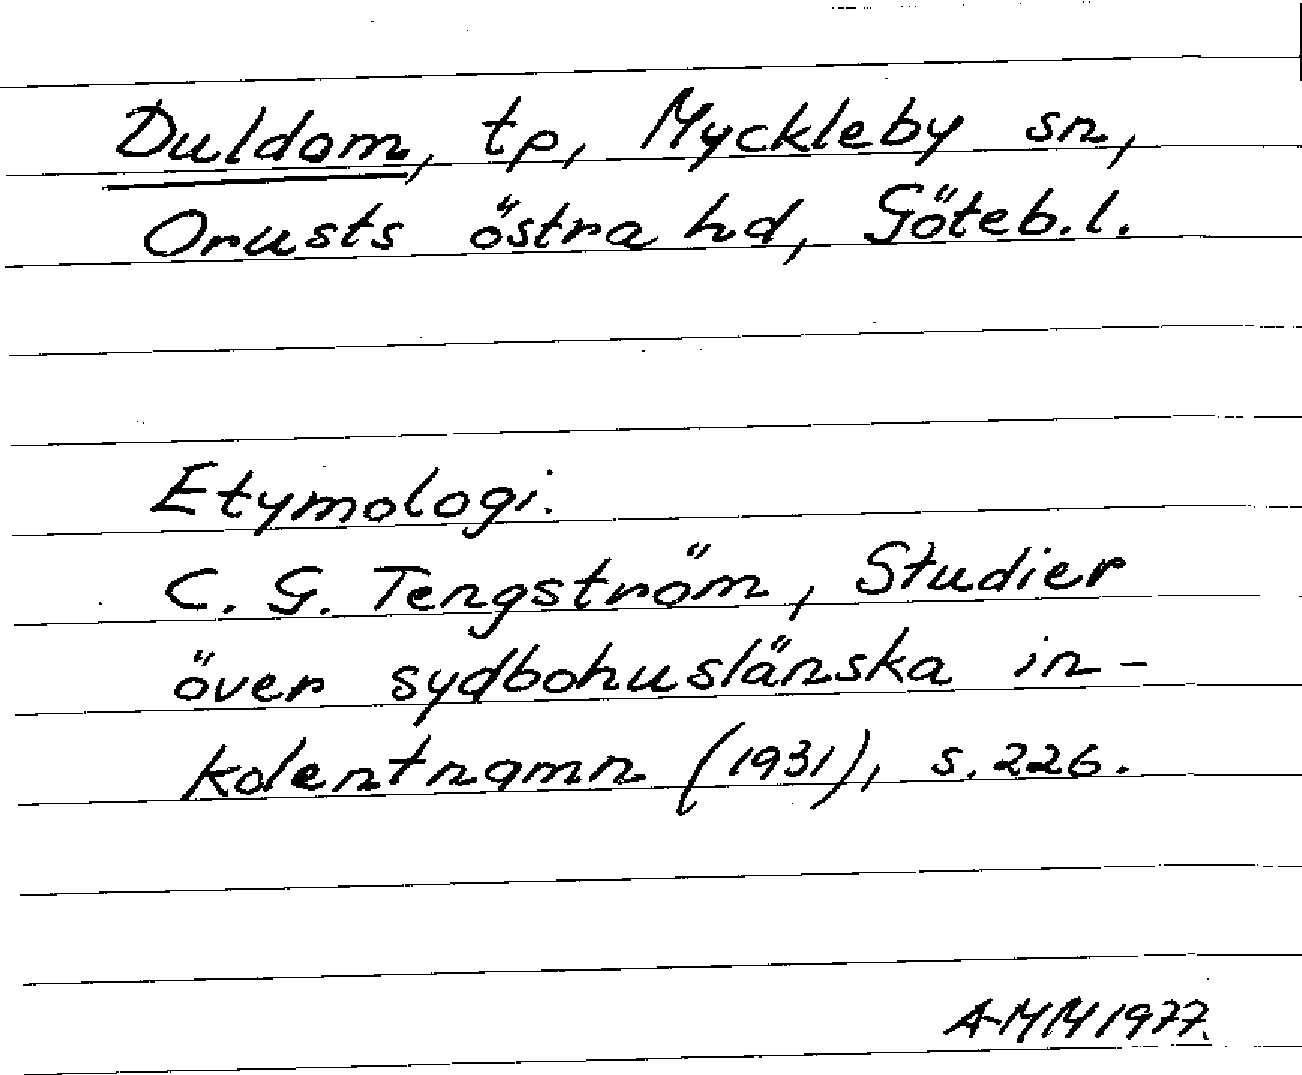 Duldam, tp, Myckleby sn,
Orusts östra hd, Göteb.l.
Etymologi.
C. G. Tengström, Studier
över sydbohuslänska in-
kolentnamn (1931), s. 226.
A-MM 1977.